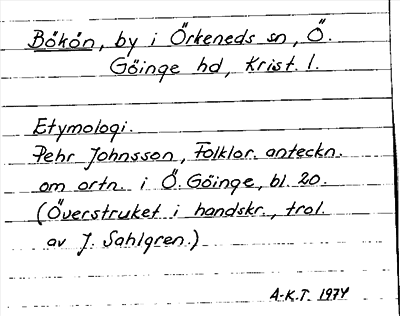 Bökön, by i Örkeneds sn, Ö.
Göinge hd, Krist. l.
Etymologi.
Pehr Johnsson, Folklor. anteckn.
om ortn. i Ö. Göinge, bl. 20.
(Överstruket i handskr., trol.
av J. Sahlgren.)
A-K.T. 1974